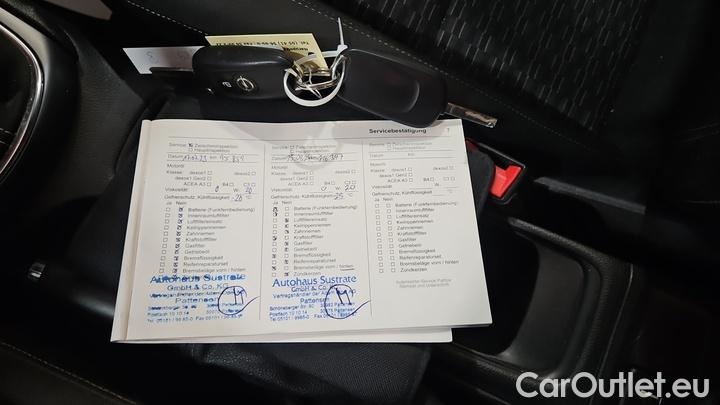 Servicebestätigung 7
Service: Zwischeninspektion
Hauptinspektion
Datum km
Motoröl
Klasse: dexos1 dexos2
dexos1 Gen2
ACEA A3 B4 C3
Viskosität: 0 W- 20
Gefrierschutz, Kühlflüssigkeit -28 °C
Ja Nein
Batterie (Funkfernbedienung)
Innenraumluftfilter
Luftfiltereinsatz
Keilrippenriemen
Zahnriemen
Kraftstofffilter
Gasfilter
Getriebeöl
Bremsflüssigkeit
Reifenreparaturset
Bremsbeläge vorn / hinten
Autohaus Sustrate
GmbH & Co. KG
Vertragshändler der Adam
Pattensen
Postfach 10 10 14
Service: Zwischeninspektion
Hauptinspektion
Datum km
Motoröl
Klasse: dexos1 dexos2
dexos1 Gen2
ACEA A3 B4 C3
Viskosität: 0 W- 20
Gefrierschutz, Kühlflüssigkeit -25 °C
Ja Nein
Batterie (Funkfernbedienung)
Innenraumluftfilter
Luftfiltereinsatz
Keilrippenriemen
Zahnriemen
Kraftstofffilter
Gasfilter
Getriebeöl
Bremsflüssigkeit
Reifenreparaturset
Bremsbeläge vorn / hinten
Zündkerzen
Autohaus Sustrate
GmbH & Co.
Vertragshändler der Adam
Pattensen
Postfach 10 10 14
Service: Zwischeninspektion
Hauptinspektion
Datum km
Motoröl
Klasse: dexos1 dexos2
dexos1 Gen2
ACEA A3 B4 C3
Viskosität: W-
Gefrierschutz, Kühlflüssigkeit °C
Ja Nein
Batterie (Funkfernbedienung)
Innenraumluftfilter
Luftfiltereinsatz
Keilrippenriemen
Zahnriemen
Kraftstofffilter
Gasfilter
Getriebeöl
Bremsflüssigkeit
Reifenreparaturset
Bremsbeläge vorn / hinten
Zündkerzen
Autorisierter Service Partner
Stempel und Unterschrift
CarOutlet.eu